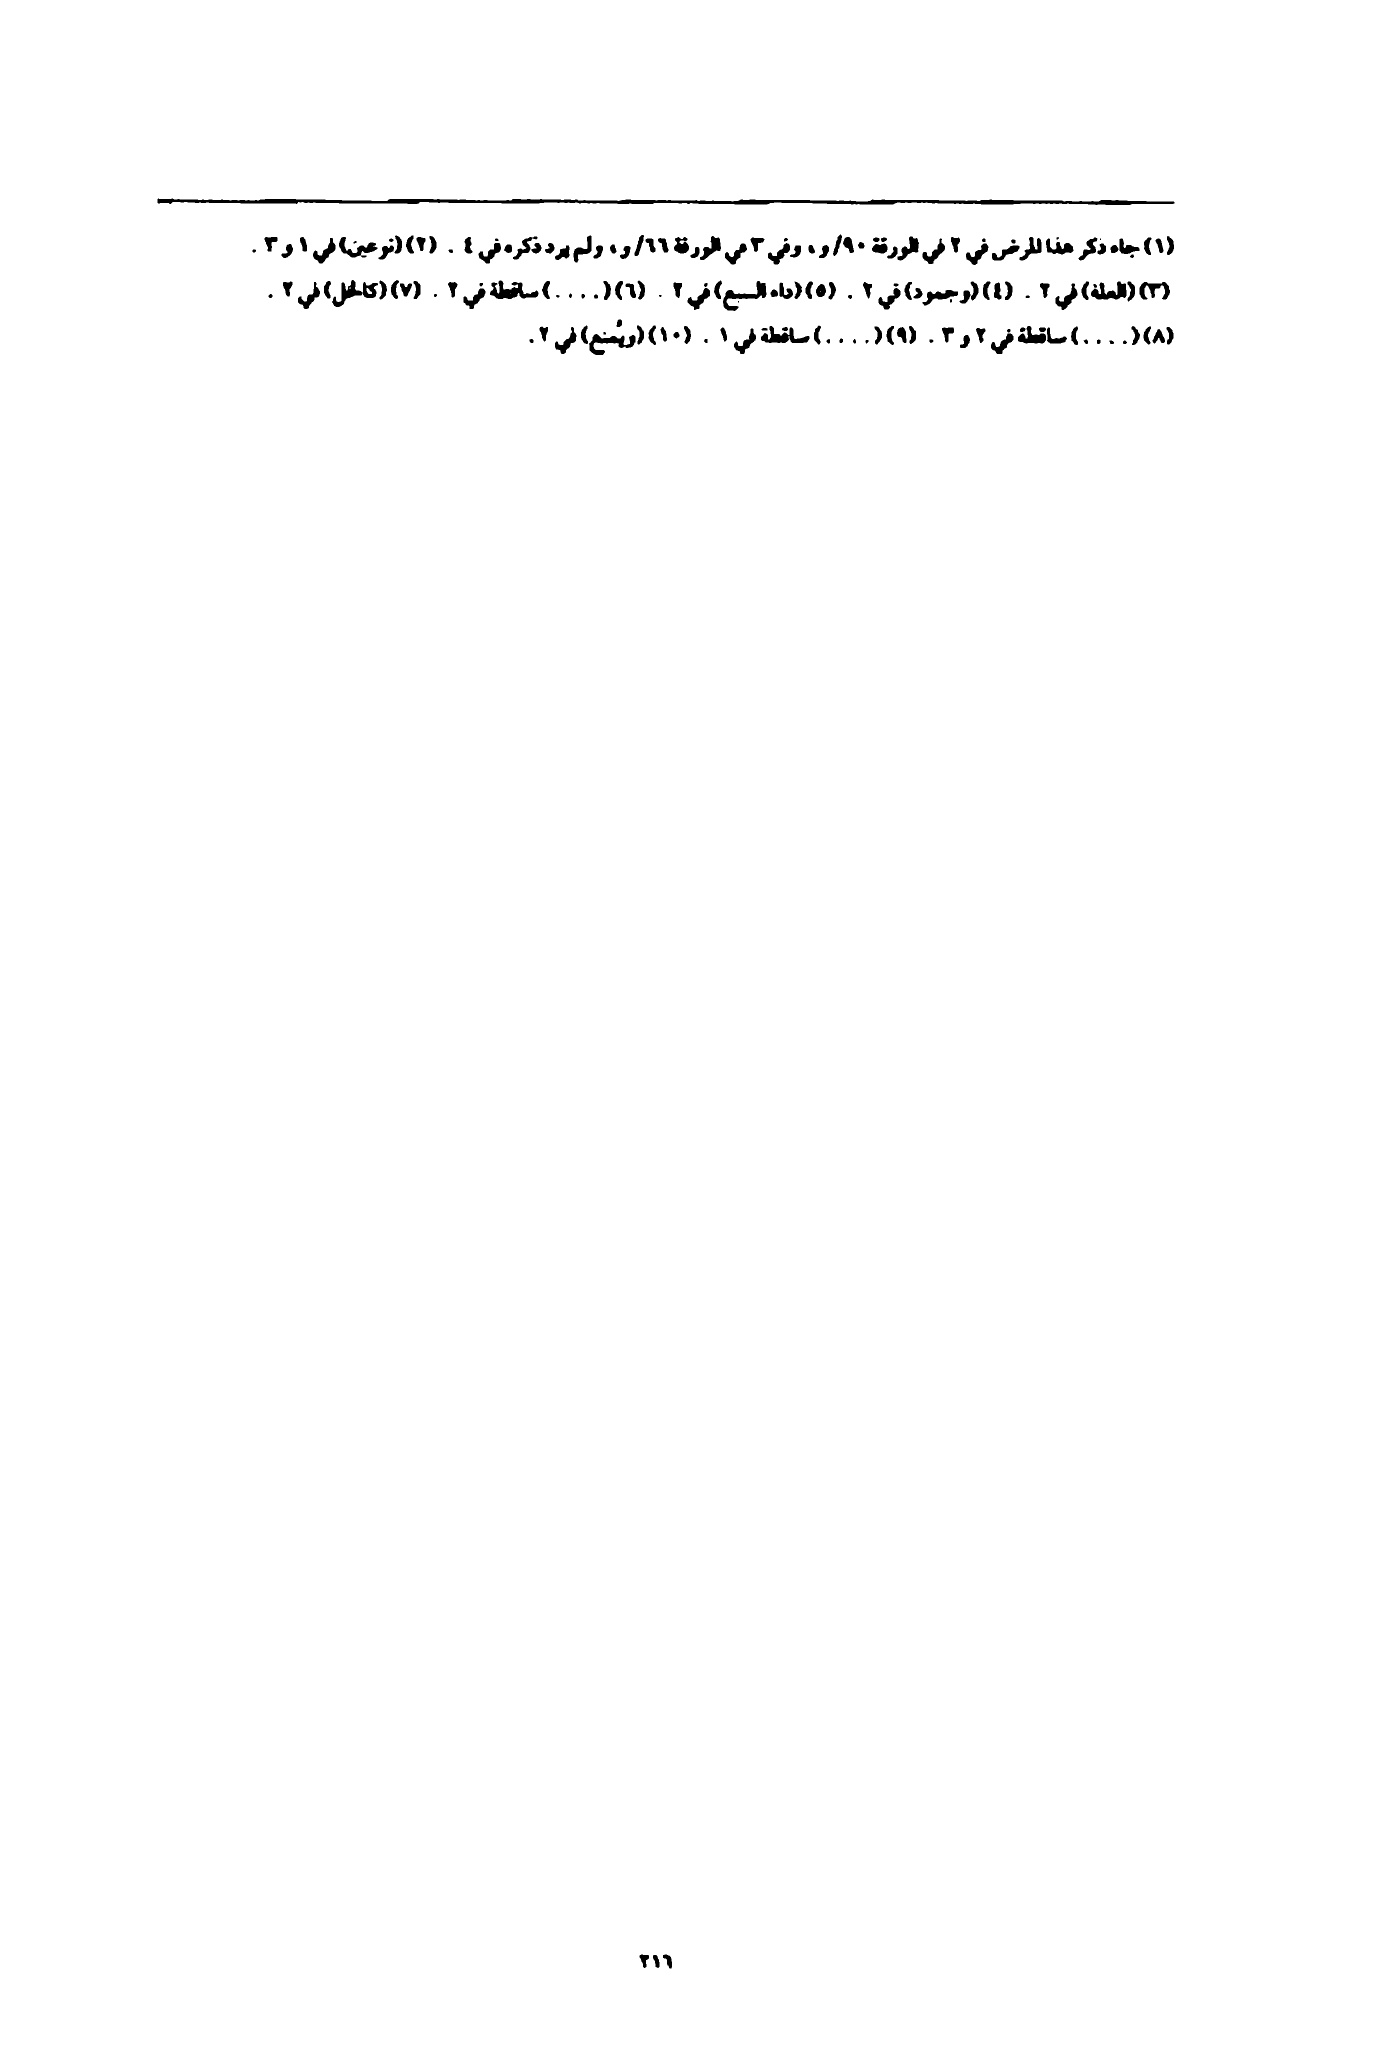 (١) جاء ذكر هذا المرض في ٢ في الورقة ٩٠/ و، وفي ٣ في الورقة ٦٦/ و، ولم يرد ذكره في ٤ . (٢) (نوعين) في ١ و ٣ .
(٣) (العلة) في ٢ . (٤) (وجمود) في ٢ . (٥) (داء السبع) في ٢ . (٦) (....) ساقطة في ٢ . (٧) (كالخل) في ٢ .
(٨) (....) ساقطة في ٢ و ٣ . (٩) (....) ساقطة في ١ . (١٠) (ويُمنع) في ٢ .
٢١٦